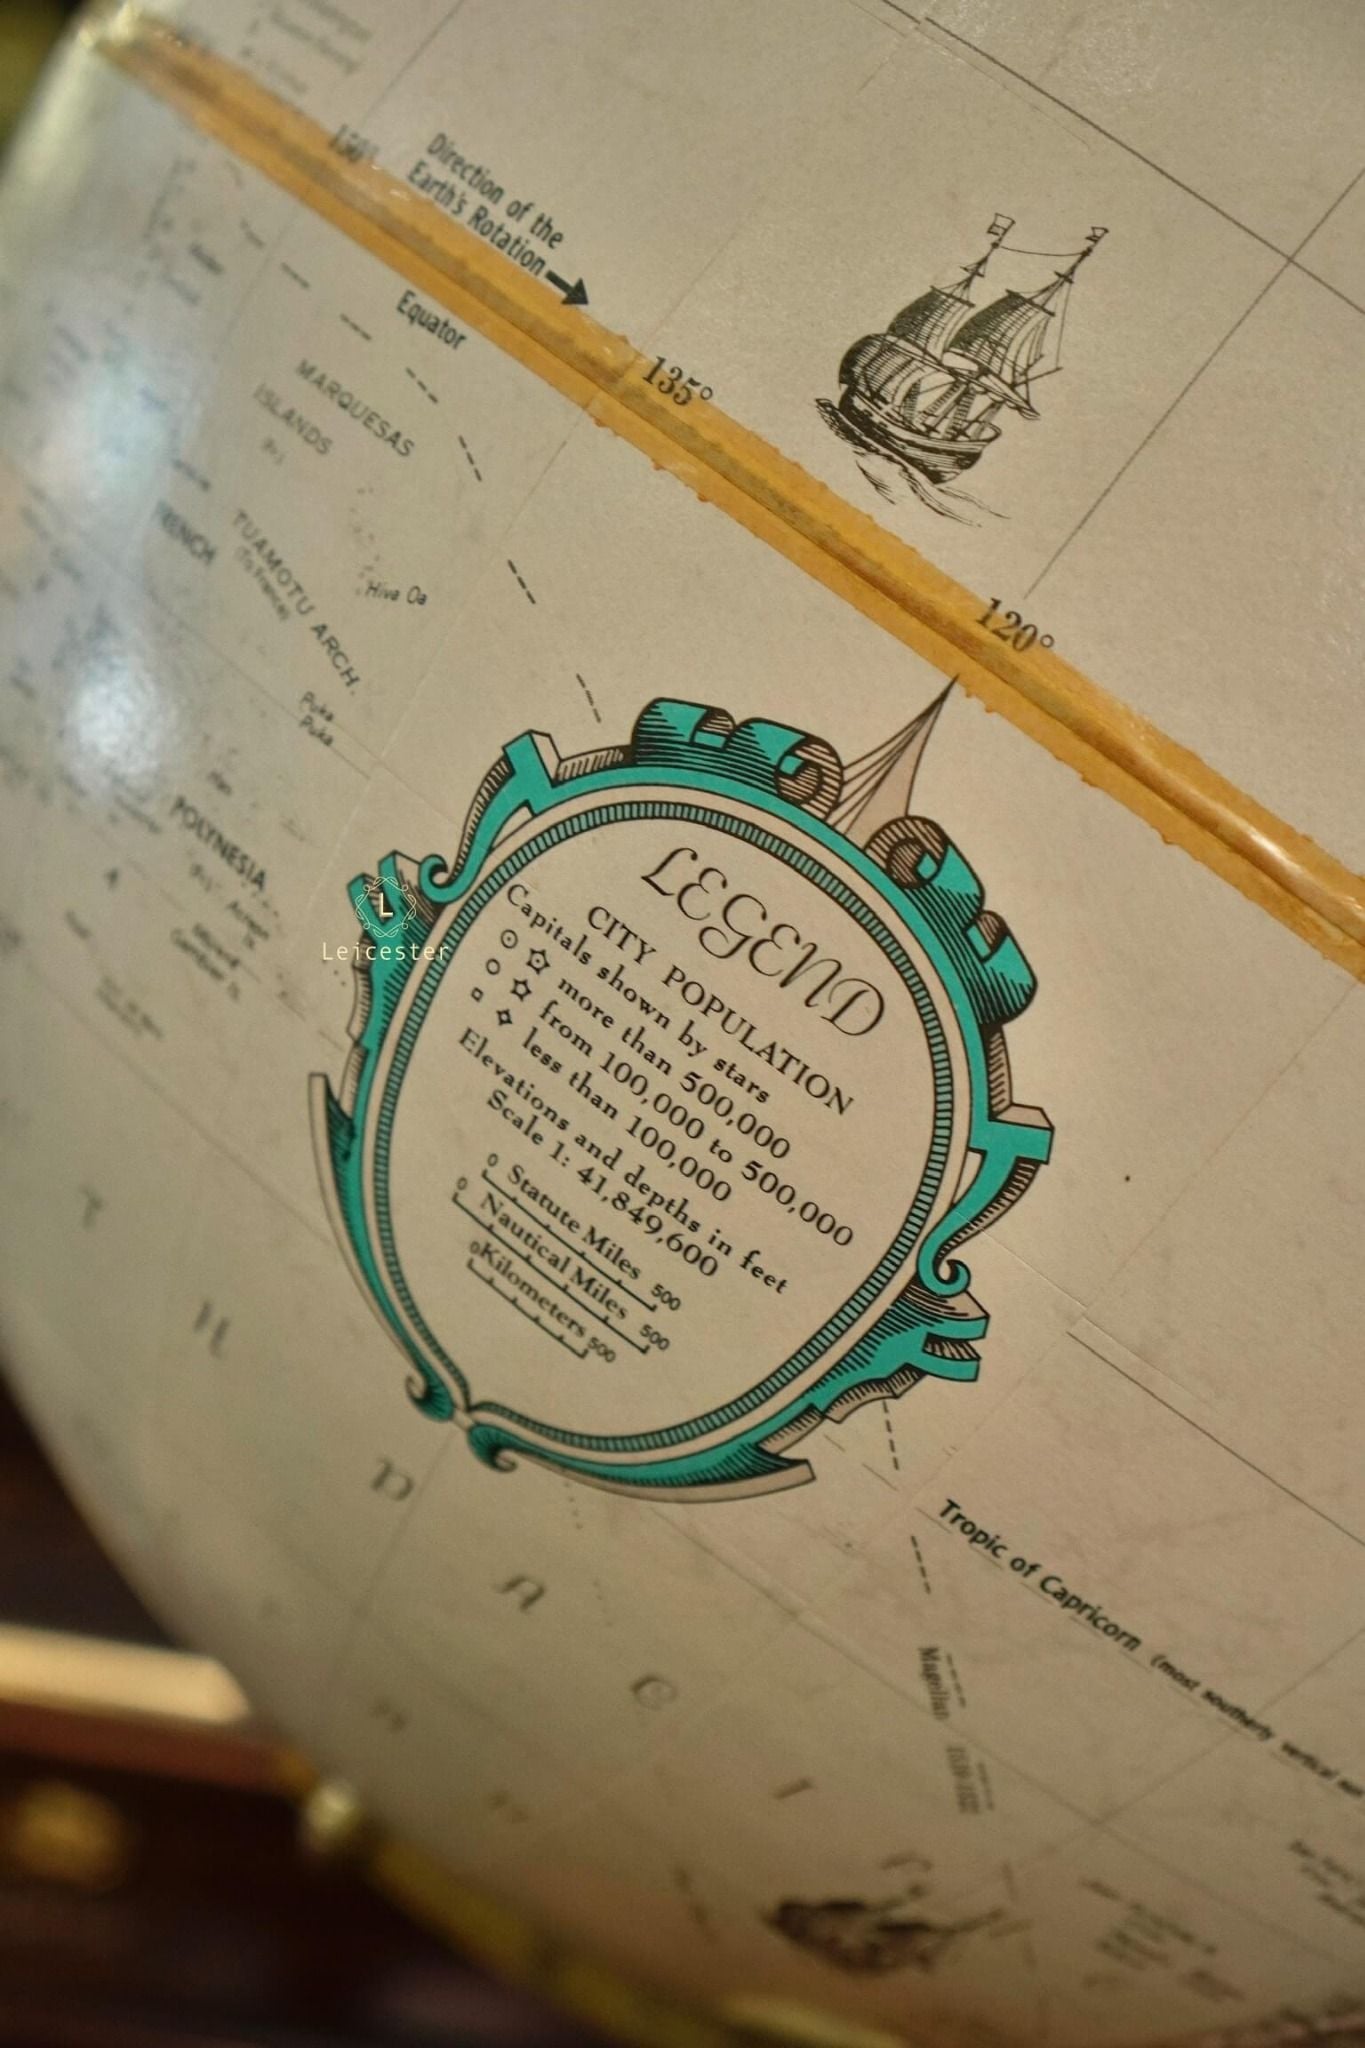 150°
Direction of the
Earth's Rotation
Equator
135°
120°
MARQUESAS
ISLANDS
Hiva Oa
TUAMOTU ARCH.
(To France)
FRENCH
Puka
Puka
POLYNESIA
L
Leicester
LEGEND
CITY POPULATION
Capitals shown by stars
more than 500,000
from 100,000 to 500,000
less than 100,000
Elevations and depths in feet
Scale 1: 41,849,600
0 Statute Miles 500
0 Nautical Miles 500
0 Kilometers 500
Tropic of Capricorn (most southerly vertical sun
Magellan
P A C I